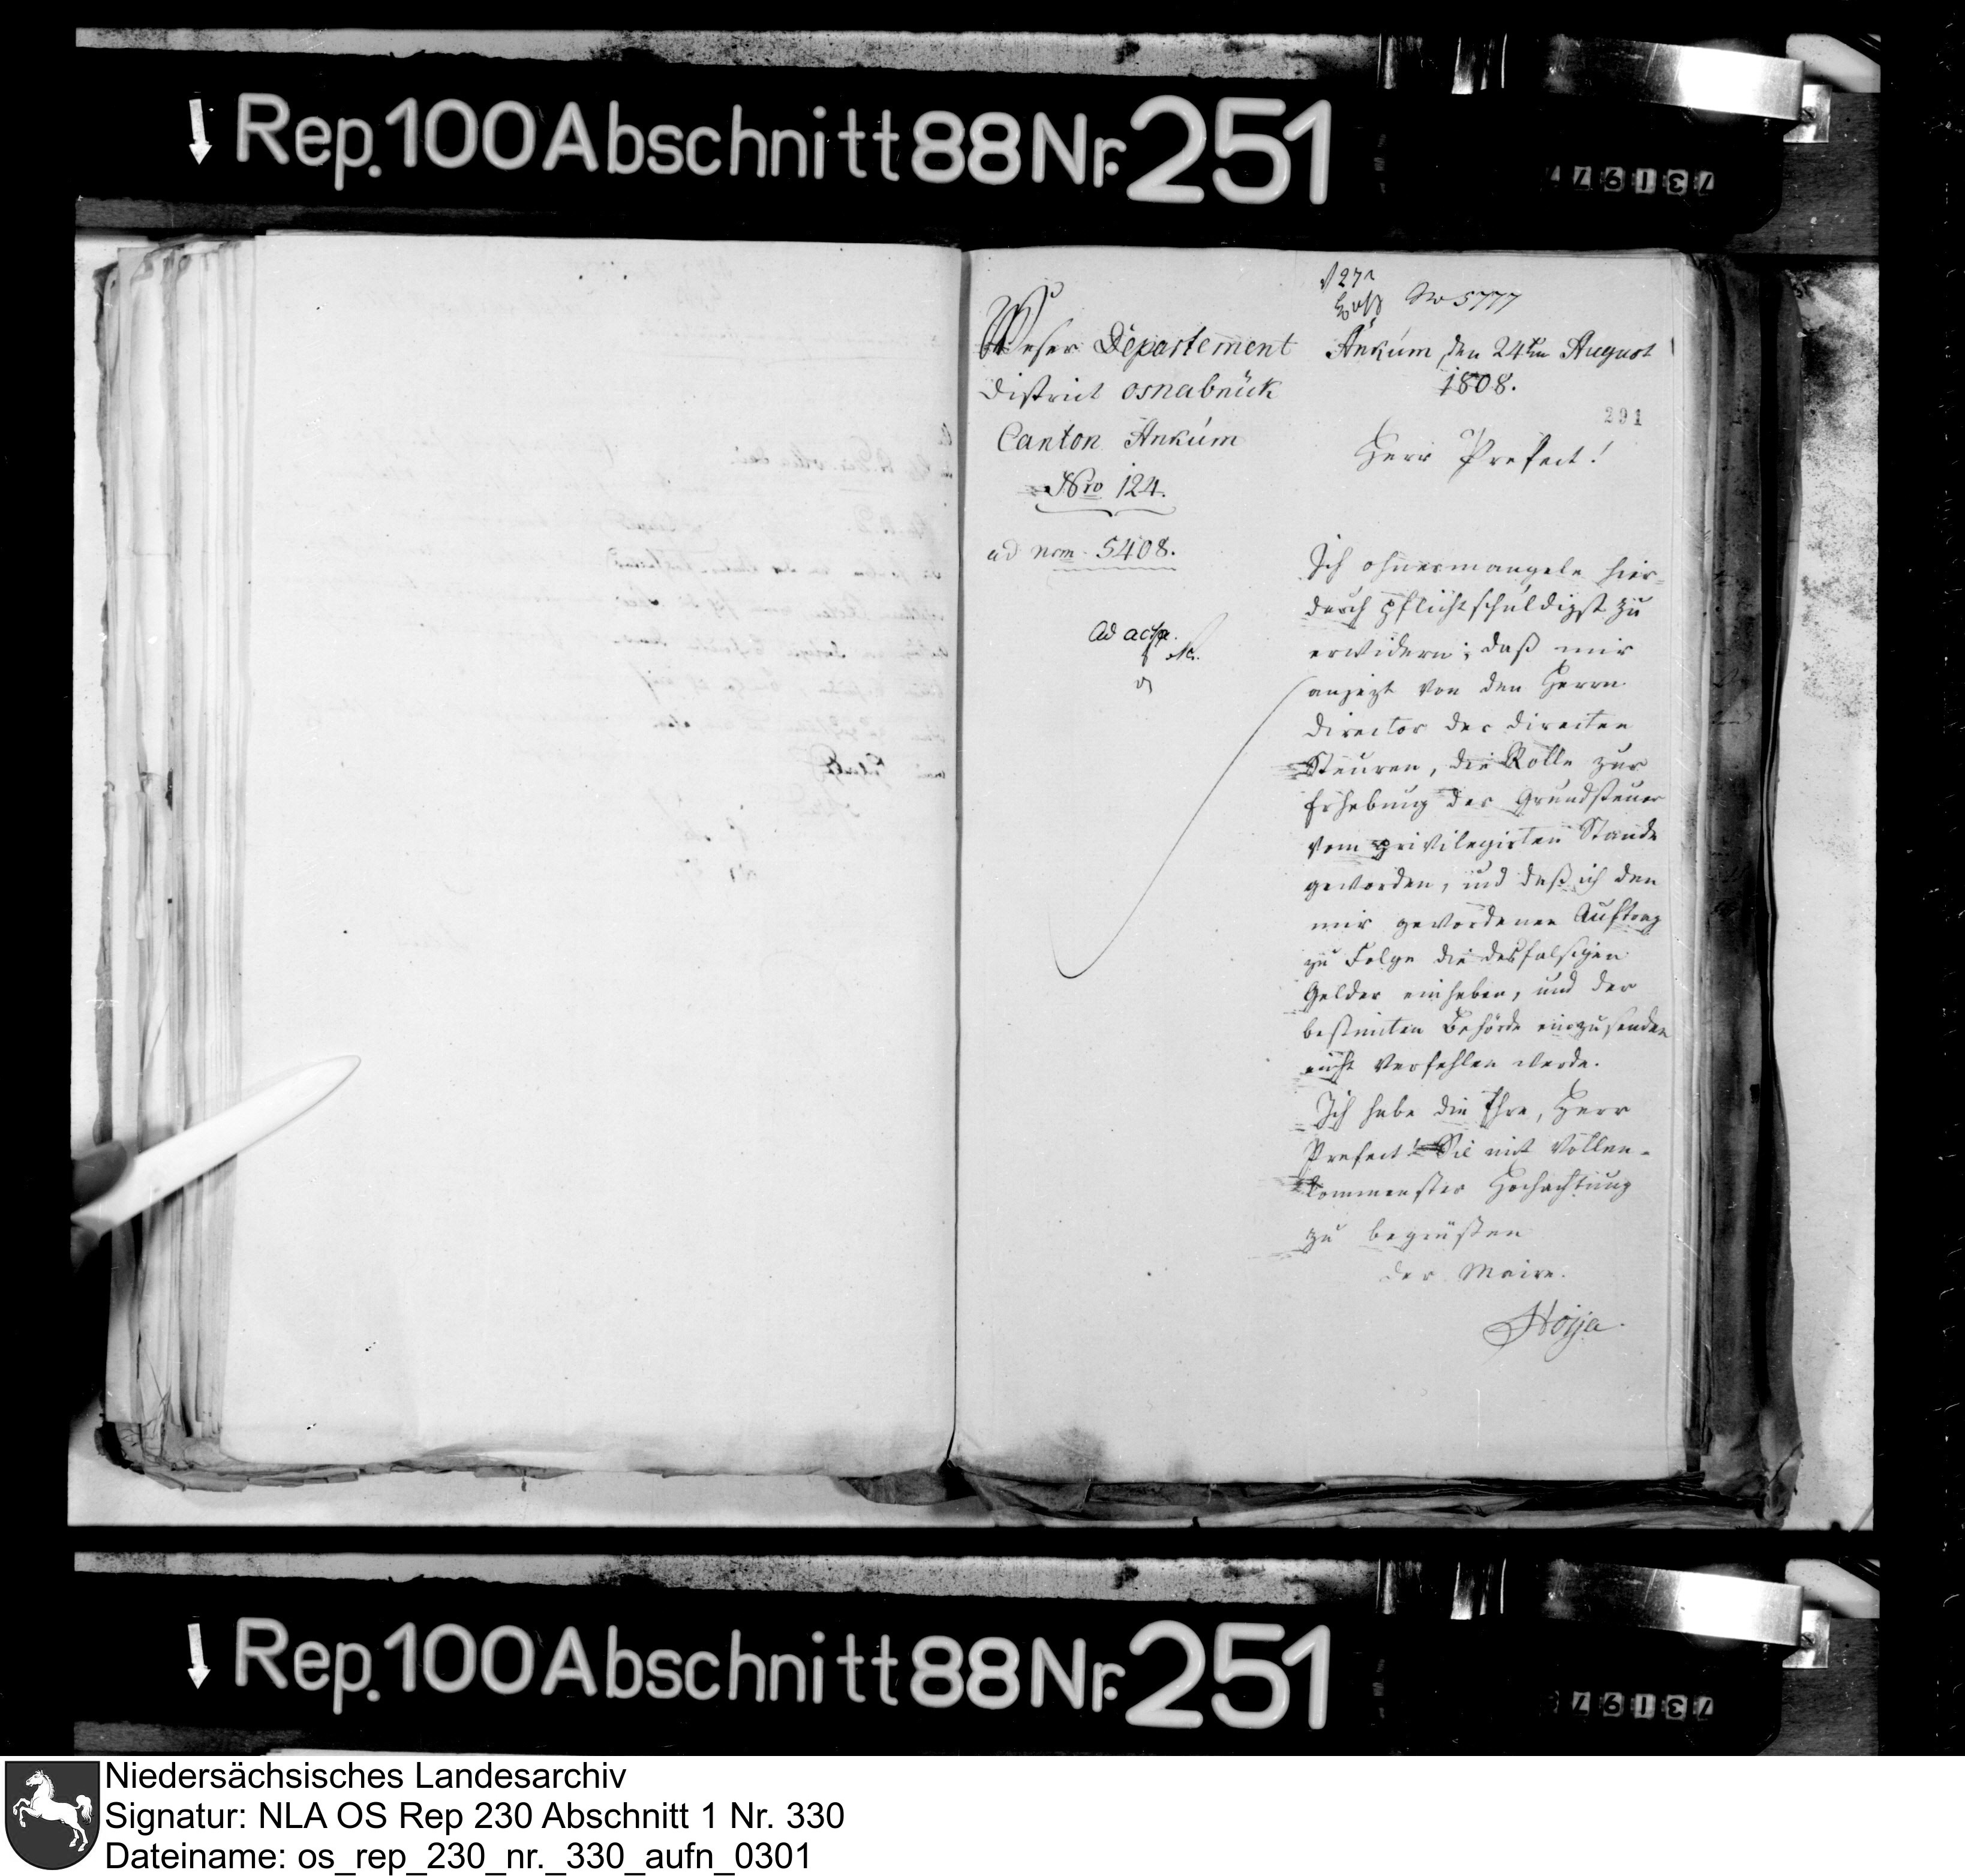 Rep. 100 Abschnitt 88 Nr. 251
No 5777
Weser Departement
District Osnabrück
Canton Ankum
Nro 124.
ad num. 5408.
ad acta.
Ankum, den 24ten August
1808.
291
Herr Prefect!
Ich ohnermangele hier-
durch pflichtschuldigst zu
erwidern; daß mir
anjezt von den Herrn
Director der directen
Steuren, die Rolle zur
Erhebung der Grundsteuer
vom privilegirten Stande
geworden, und daß ich den
mir gewordenen Auftrag
zu Folge die desfalsigen
Gelder einheben, und der
bestimten Behörde einzusenden
nicht verfehlen werde.
Ich habe die Ehre, Herr
Prefect! Sie mit vollen-
kommenster Hochachtung
zu begrüßen
der Maire.
Rep. 100 Abschnitt 88 Nr. 251
Niedersächsisches Landesarchiv
Signatur: NLA OS Rep 230 Abschnitt 1 Nr. 330
Dateiname: os_rep_230_nr._330_aufn_0301